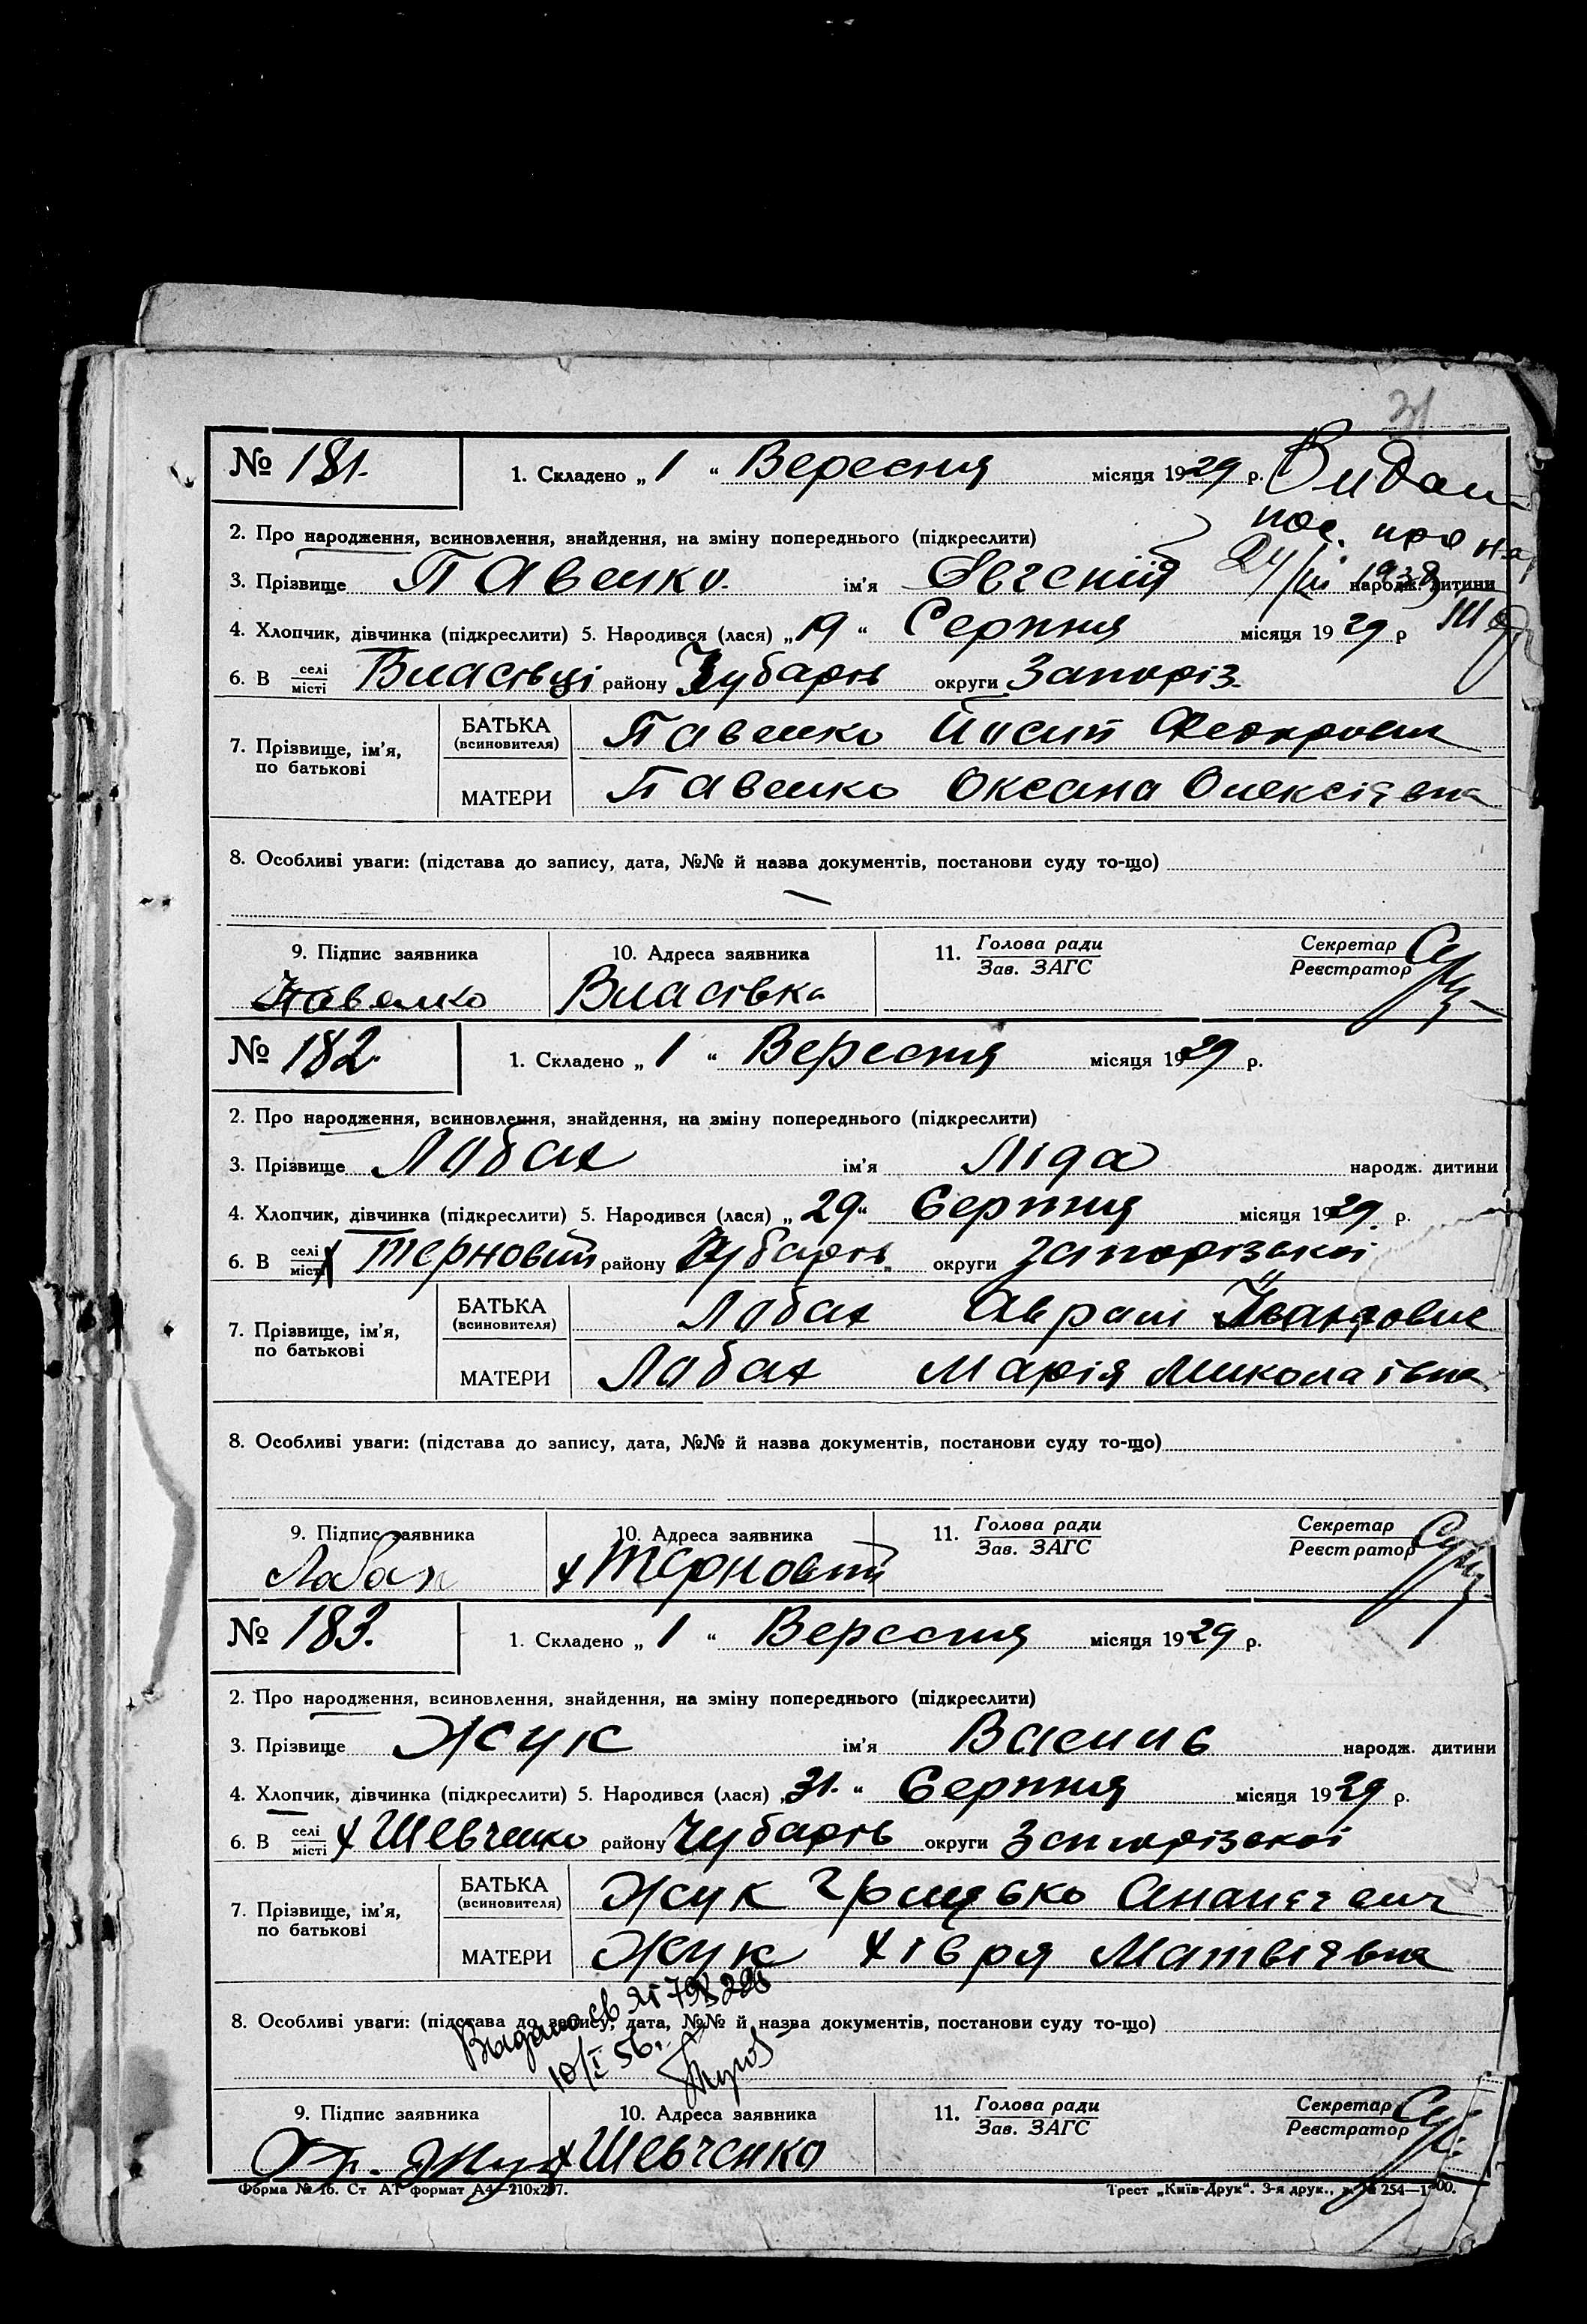 31
№ 181. 1. Складено „ 1 “ Вересня місяця 1929 р. Видан
пос. про на
2. Про народження, всиновлення, знайдення, на зміну попереднього (підкреслити)
3. Прізвище Павенко ім’я Євгеній народж. дитини
4. Хлопчик, дівчинка (підкреслити) 5. Народився (лася) „ 19 “ Серпня місяця 19 29 р
6. В селі місті Власівці району Чубарів округи Запоріз.
7. Прізвище, ім’я, по батькові БАТЬКА (всиновителя) Павенко Йосип Федорович
МАТЕРИ Павенко Оксана Олексіівна
8. Особливі уваги: (підстава до запису, дата, №№ й назва документів, постанови суду то-що)
9. Підпис заявника 10. Адреса заявника 11. Голова ради Зав. ЗАГС Секретар Реєстратор
Павенко Власівка
№ 182. 1. Складено „ 1 “ Вересня місяця 1929 р.
2. Про народження, всиновлення, знайдення, на зміну попереднього (підкреслити)
3. Прізвище Лабах ім’я Ліда народж. дитини
4. Хлопчик, дівчинка (підкреслити) 5. Народився (лася) „ 29 “ Серпня місяця 1929 р.
6. В селі місті х Терновий району Чубарів округи Запорізької
7. Прізвище, ім’я, по батькові БАТЬКА (всиновителя) Лабах Аврам Іванович
МАТЕРИ Лабах Марія Миколаівна
8. Особливі уваги: (підстава до запису, дата, №№ й назва документів, постанови суду то-що)
9. Підпис заявника 10. Адреса заявника 11. Голова ради Зав. ЗАГС Секретар Реєстратор
Лабах х Терновий
№ 183. 1. Складено „ 1 “ Вересня місяця 19 29 р.
2. Про народження, всиновлення, знайдення, на зміну попереднього (підкреслити)
3. Прізвище Жук ім’я Василь народж. дитини
4. Хлопчик, дівчинка (підкреслити) 5. Народився (лася) „ 31. “ Серпня місяця 19 29 р.
6. В селі місті х Шевченко району Чубарів округи Запорізької
7. Прізвище, ім’я, по батькові БАТЬКА (всиновителя) Жук Грицько Ананієвич
МАТЕРИ Жук Хівря Матвіівна
8. Особливі уваги: (підстава до запису, дата, №№ й назва документів, постанови суду то-що)
10/I 56.
9. Підпис заявника 10. Адреса заявника 11. Голова ради Зав. ЗАГС Секретар Реєстратор
Гр. Жук х Шевченко
Форма № 16. Ст А1 формат А4—210х297. Трест „Київ-Друк“. 3-я друк.,